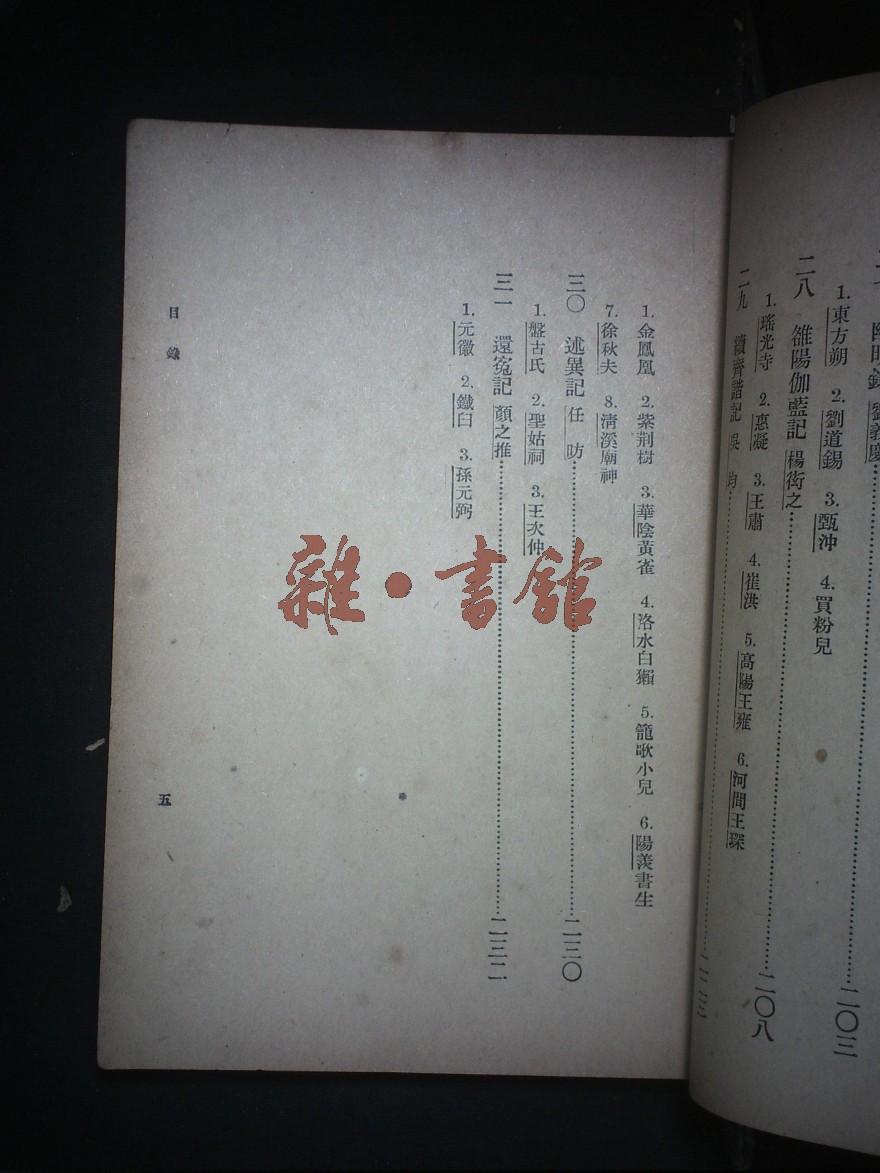 劉義慶
二〇三
1. 東方朔 2. 劉道錫 3. 甄沖 4. 買粉兒
二八 雒陽伽藍記 楊衒之 二〇八
1. 瑤光寺 2. 惠凝 3. 王肅 4. 崔洪 5. 高陽王雍 6. 河間王琛
二九 續齊諧記 吳均
1. 金鳳凰 2. 紫荆樹 3. 華陰黃雀 4. 洛水白獺 5. 籠歌小兒 6. 陽羨書生
7. 徐秋夫 8. 清溪廟神
三〇 述異記 任昉 二三〇
1. 盤古氏 2. 聖姑祠 3. 王次仲
三一 還冤記 顏之推 二三二
1. 元徽 2. 鐵臼 3. 孫元弼
目錄
五
雜·書館